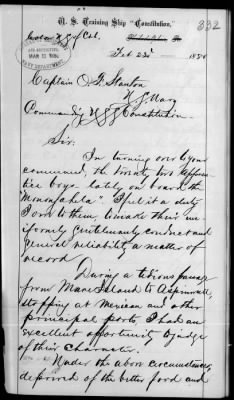 U. S. Training Ship "Constitution,"
332
Feb 23d 1880
MAR 11 1880
NAVY DEPARTMENT
Captain O. F. Stanton
U S Navy
Commandg U S S Constitution
Sir:
In turning over to your
command, the twenty two appren-
tice boys lately on board the
"Minnesota" I feel it a duty
I owe to them, to make their un-
iformly gentlemanly conduct and
general reliability a matter of
record.
During a tedious passage
from Mare Island to Aspinwall,
stopping at Mexican and other
principal ports, I had an
excellent opportunity to judge
of their character.
Under the above circumstances,
deprived of the better food and